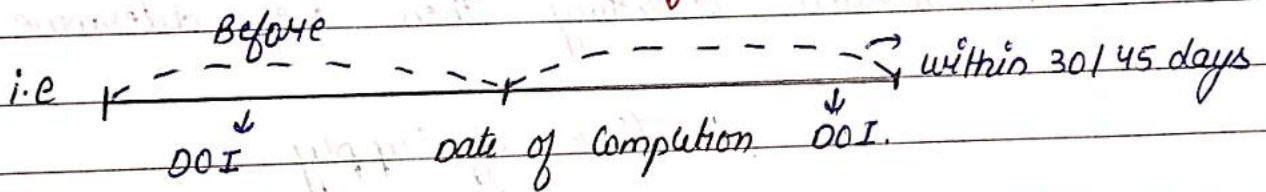 Before
i.e within 30/45 days
DOI Date of Completion DOI.